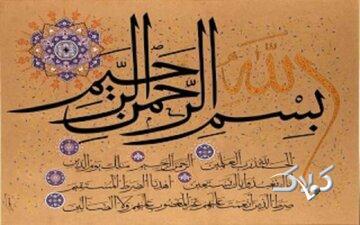 الله
بسم الله الرحمن الرحیم
الحمد لله رب العالمین الرحمن الرحیم مالک یوم الدین
ایاک نعبد و ایاک نستعین اهدنا الصراط المستقیم
صراط الذین انعمت علیهم غیر المغضوب علیهم ولا الضالین